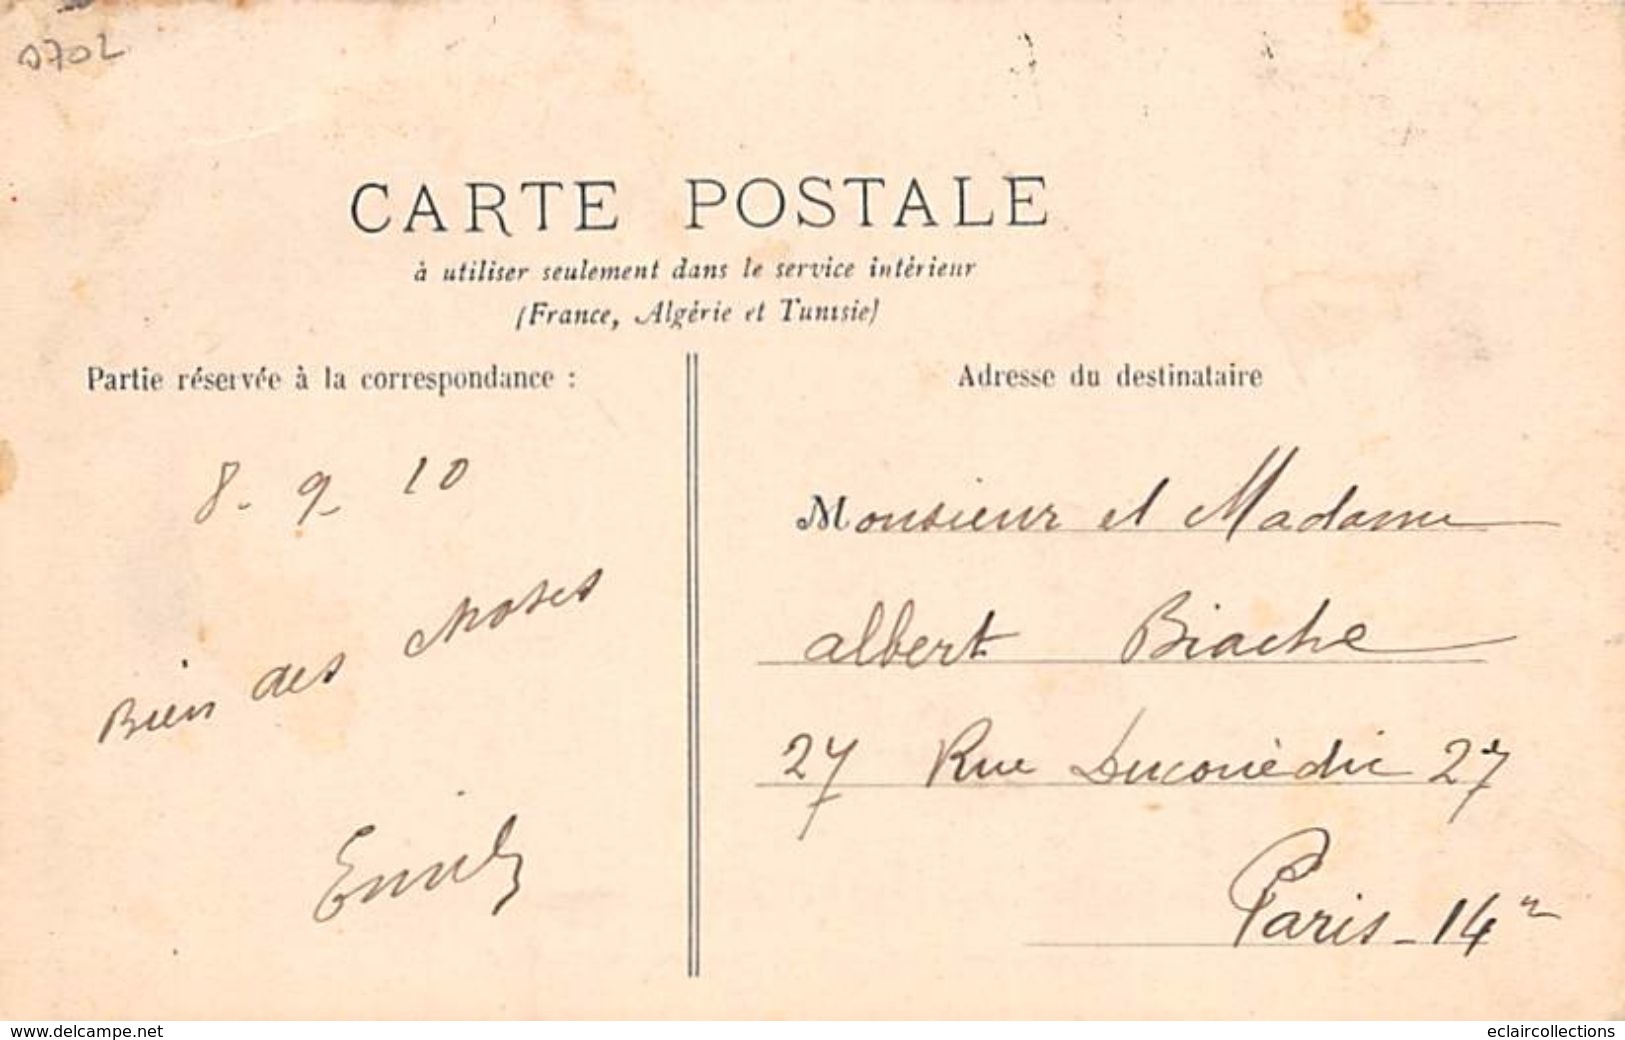 0702
CARTE POSTALE
à utiliser seulement dans le service intérieur
(France, Algérie et Tunisie)
Partie réservée à la correspondance :
8- 9- 10
Bien des choses
Adresse du destinataire
Monsieur et Madame
albert Biache
27 Rue Ducouëdic 27
Paris - 14e
www.delcampe.net
eclaircollections